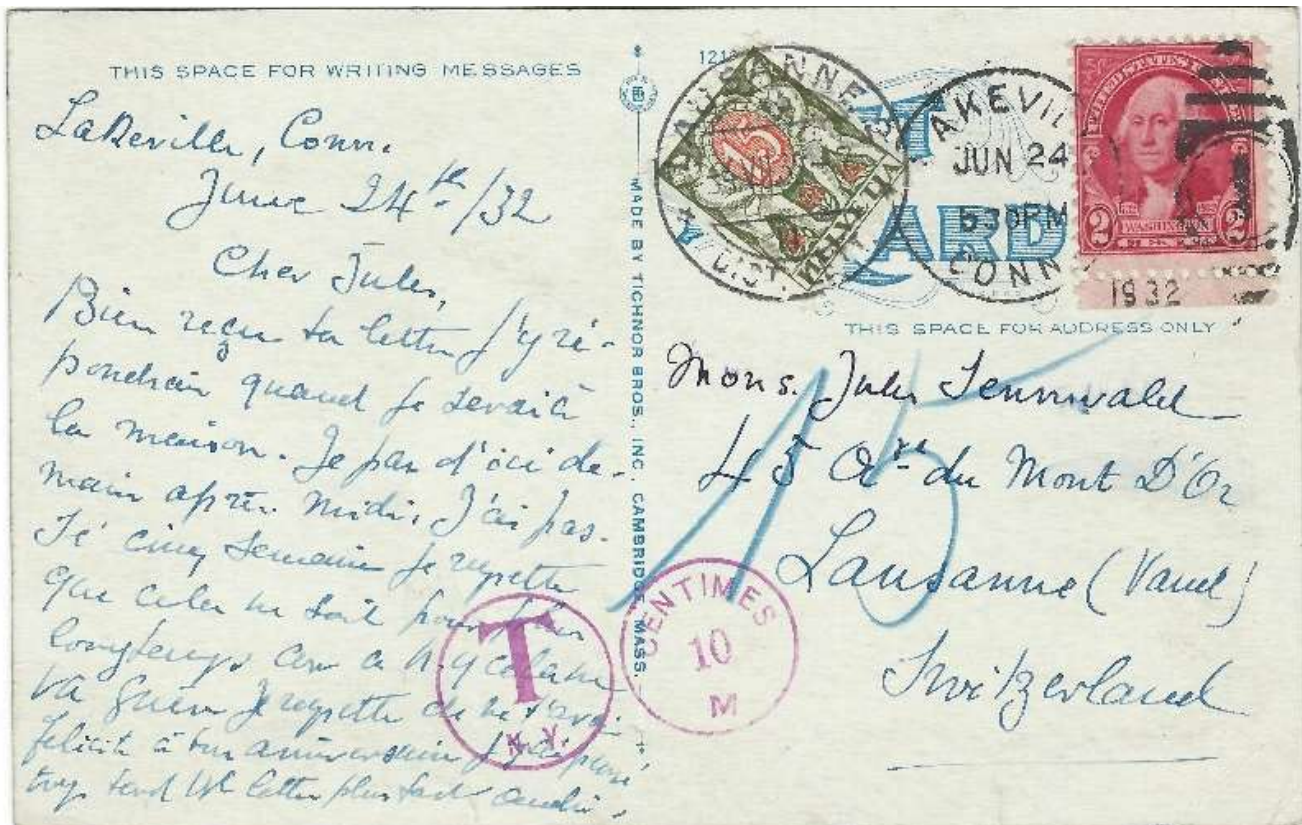 THIS SPACE FOR WRITING MESSAGES
Lakeville, Conn.
June 24th/32
Cher Jules,
Bien reçu ta lettre j'y ré-
pondrai quand je serai à
la maison. Je par d'ici de-
main après midi, J'ai pas-
sé cinq semaine je regrette
que cela ne soit pour plus
longtemps car a N.Y cela ne
va Je regrette de ne t'avoir
felicité à ton anniversaire j'y ai pensé
trop tard Une lettre plus tard
MADE BY TICHNOR BROS., INC. CAMBRIDGE, MASS.
121
LAUSANNE
DIST. LETTR
15
LAKEVILLE
JUN 24
530PM
CONN.
1932
UNITED STATES
2 WASHINGTON 2
CARD
THIS SPACE FOR ADDRESS ONLY
Mons. Jules Sennwald
45 Ave du Mont D'Or
Lausanne (Vaud)
Switzerland
15
T
N.Y.
CENTIMES
10
M